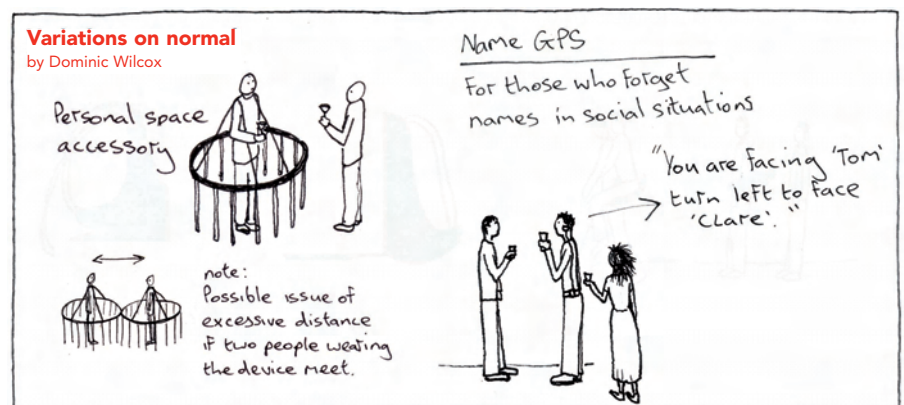 Variations on normal
by Dominic Wilcox
Personal space
accessory
note:
Possible issue of
excessive distance
if two people wearing
the device meet.
Name GPS
For those who forget
names in social situations
"You are facing 'Tom'
turn left to face
'Clare'."